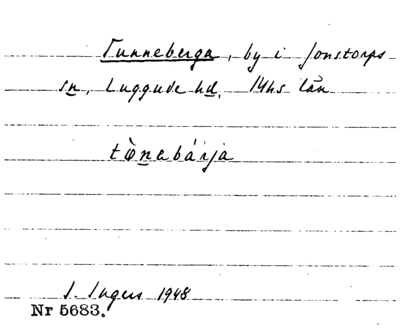 Tunneberga, by i Jonstorps
sn, Luggude hd, Mhs län
tònabárja
I. Ingers 1948
Nr 5683.